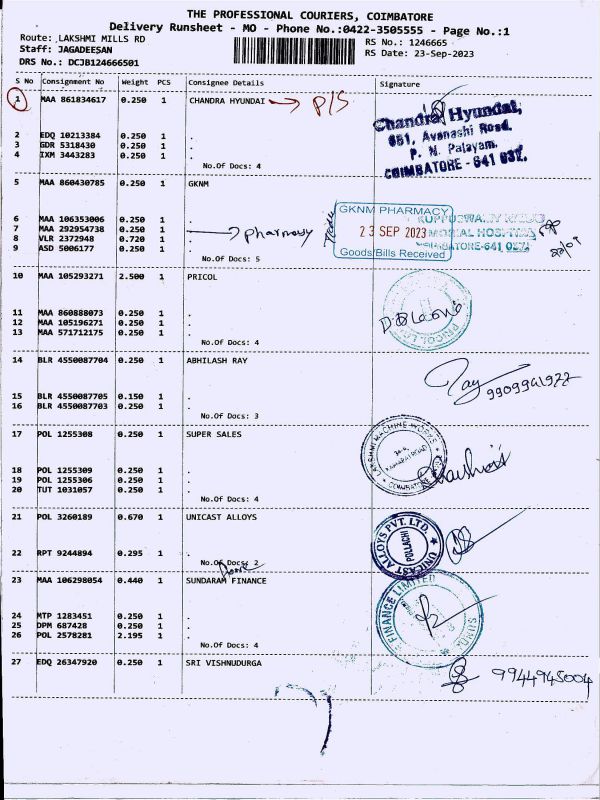 THE PROFESSIONAL COURIERS, COIMBATORE
Delivery Runsheet - MO - Phone No.:0422-3505555 - Page No.:1
Route: LAKSHMI MILLS RD
Staff: JAGADEESAN
DRS No.: DCJB124666501
RS No.: 1246665
RS Date: 23-Sep-2023
S No Consignment No Weight PCS Consignee Details Signature
1 MAA 861834617 0.250 1 CHANDRA HYUNDAI → P/S
Chandra Hyundai,
Avanashi Road.
P. N. Palayam.
COIMBATORE - 641 037.
2 EDQ 10213384 0.250 1 .
3 GDR 5318430 0.250 1 .
4 IXM 3443283 0.250 1 .
No.Of Docs: 4
5 MAA 860430785 0.250 1 GKNM
GKNM PHARMACY
23 SEP 2023
Goods/Bills Received
6 MAA 106353006 0.250 1 .
7 MAA 292954738 0.250 1 . → pharmacy
8 VLR 2372948 0.720 1 .
9 ASD 5006177 0.250 1 .
No.Of Docs: 5
10 MAA 105293271 2.500 1 PRICOL
11 MAA 860888073 0.250 1 .
12 MAA 105196271 0.250 1 .
13 MAA 571712175 0.250 1 .
No.Of Docs: 4
14 BLR 4550087704 0.250 1 ABHILASH RAY
Ray
9909961922
15 BLR 4550087705 0.150 1 .
16 BLR 4550087703 0.250 1 .
No.Of Docs: 3
17 POL 1255308 0.250 1 SUPER SALES
LAKSHMI MACHINE WORKS
18 POL 1255309 0.250 1 .
19 POL 1255306 0.250 1 .
20 TUT 1031057 0.250 1 .
No.Of Docs: 4
21 POL 3260189 0.670 1 UNICAST ALLOYS
UNICAST ALLOYS PVT. LTD.
POLLACHI
22 RPT 9244894 0.295 1 .
No.Of Docs: 2
23 MAA 106298054 0.440 1 SUNDARAM FINANCE
FINANCE LIMITED
24 MTP 1283451 0.250 1 .
25 DPM 687428 0.250 1 .
26 POL 2578281 2.195 1 .
No.Of Docs: 4
27 EDQ 26347920 0.250 1 SRI VISHNUDURGA
9944945004